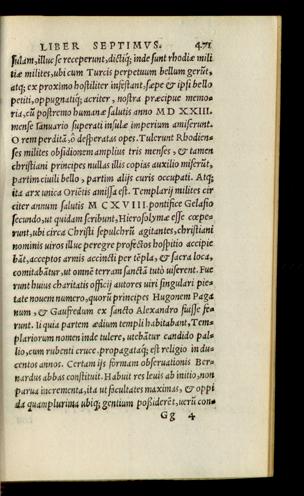 LIBER SEPTIMVS. 471
sulam, illuc se receperunt, dictiq́; inde sunt rhodiæ mili
tiæ milites, ubi cum Turcis perpetuum bellum gerũt,
atq; ex proximo hostiliter infestant, sæpe & ipsi bello
petiti, oppugnatiq́; acriter, nostra præcipue memo-
ria, cũ postremo humanæ salutis anno MD XXIII.
mense Ianuario superati insulæ imperium amiserunt.
O rem perditã, ô desperatas opes. Tulerunt Rhodien-
ses milites obsidionem amplius tris menses, & tamen
christiani principes nullas illis copias auxilio miserũt,
partim ciuili bello, partim alijs curis occupati. Atq;
ita arx unica Oriẽtis amissa est. Templarij milites cir
citer annum salutis M CXVIII. pontifice Gelasio
secundo, ut quidam scribunt, Hierosolymæ esse cœpe-
runt, ubi circa Christi sepulchrũ agitantes, christiani
nominis uiros illuc peregre profectos hospitio accipie
bãt, acceptos armis accincti per tẽpla, & sacra loca,
comitabãtur, ut omnẽ terram sanctã tutò uiserent. Fue
runt huius charitatis officij autores uiri singulari pie-
tate nouem numero, quorũ principes Hugonem Paga
num, & Gaufredum ex sancto Alexandro fuisse fe-
runt. Ii quia partem ædium templi habitabant, Tem-
plariorum nomen inde tulere, utebãtur candido pal-
lio, cum rubenti cruce. propagataq́; est religio in du-
centos annos. Certam ijs formam obseruationis Ber-
nardus abbas constituit. Habuit res leuis ab initio, non
parua incrementa, ita ut facultates maximas, & oppi
da quamplurima ubiq; gentium possiderẽt, uerũ con-
Gg 4